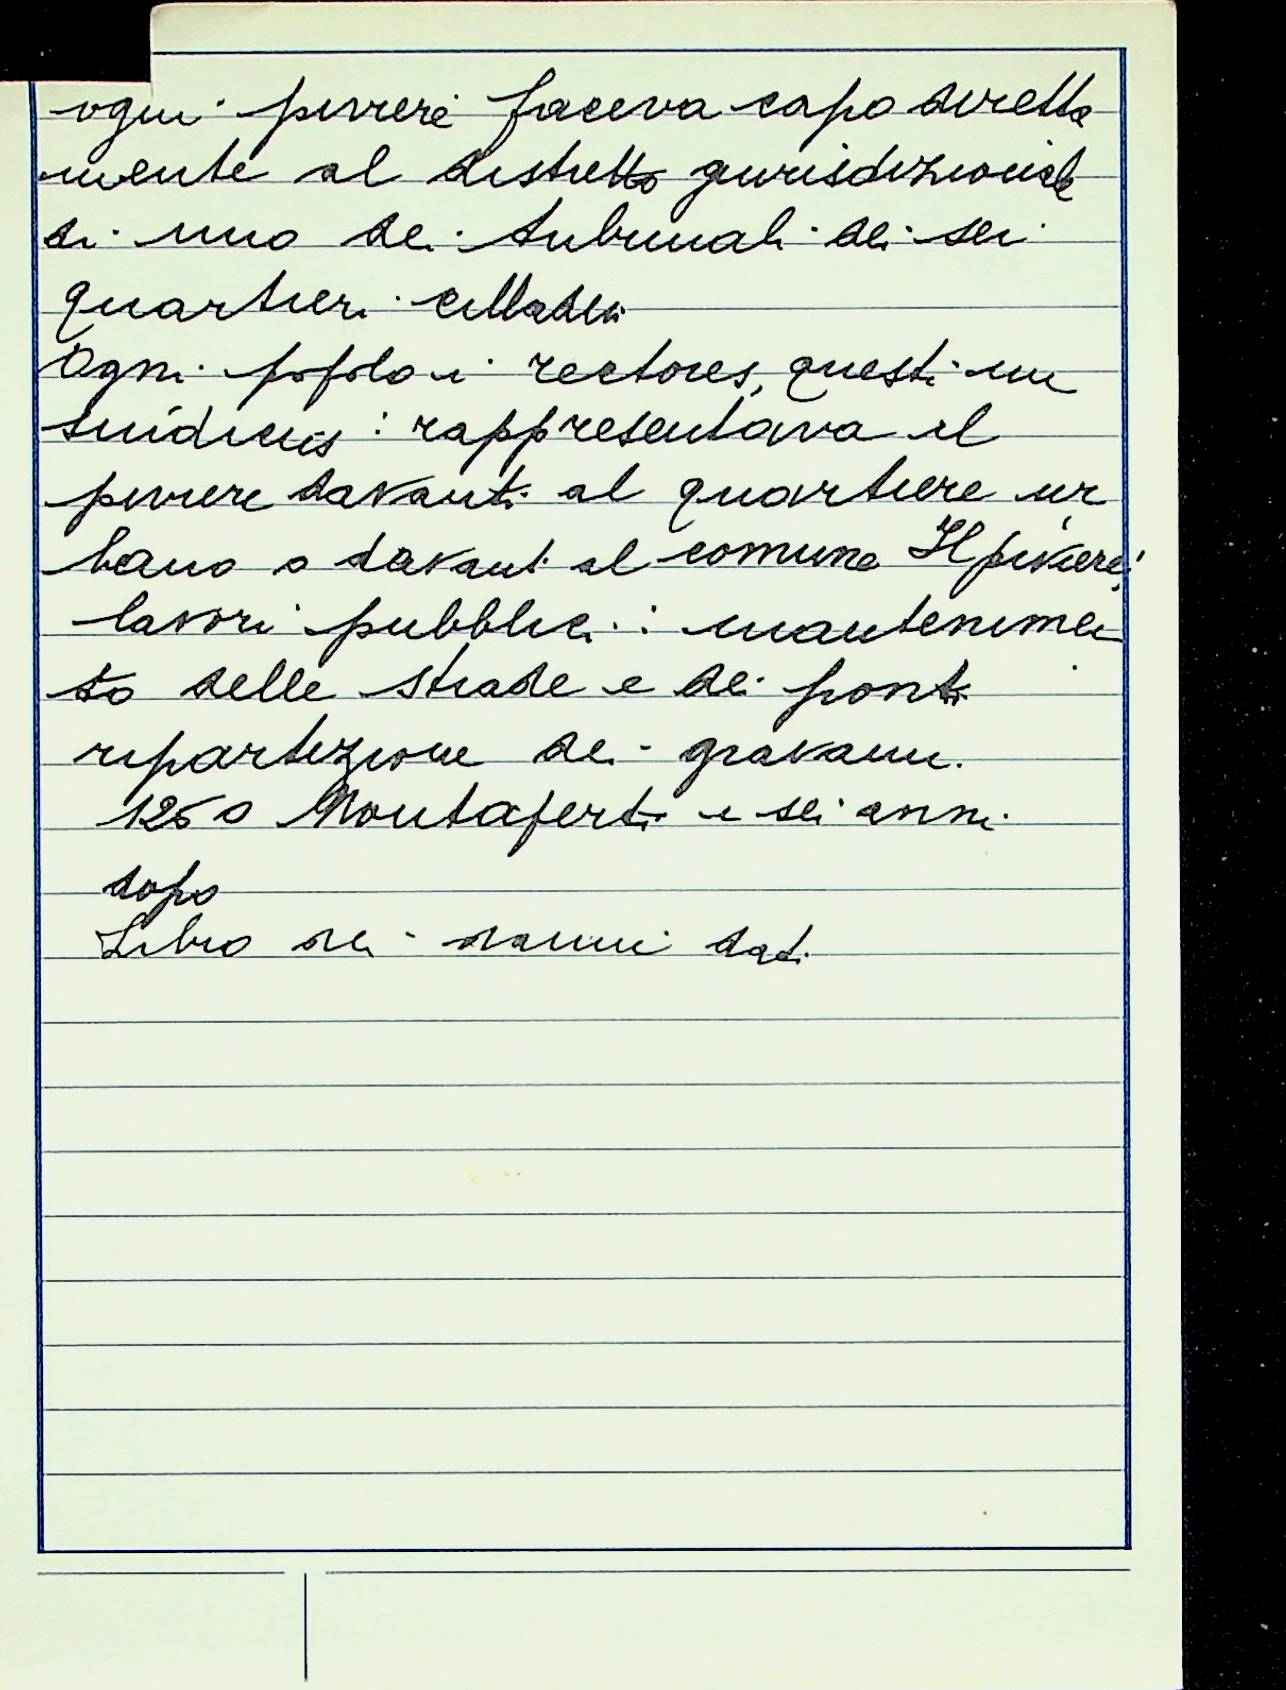 ogni piviere faceva capo diretta
mente al distretto giurisdizionale
di uno dei tribunali dei sei
quartieri cittadini
Ogni popolo i rectores, questi un
sindicus : rappresentava il
piviere davanti al quartiere ur
bano o davanti al comune Il piviere:
lavori pubblici : mantenimen
to delle strade e dei ponti
ripartizione dei gravami.
1260 Montaperti e sei anni
dopo
Libro dei danni dati